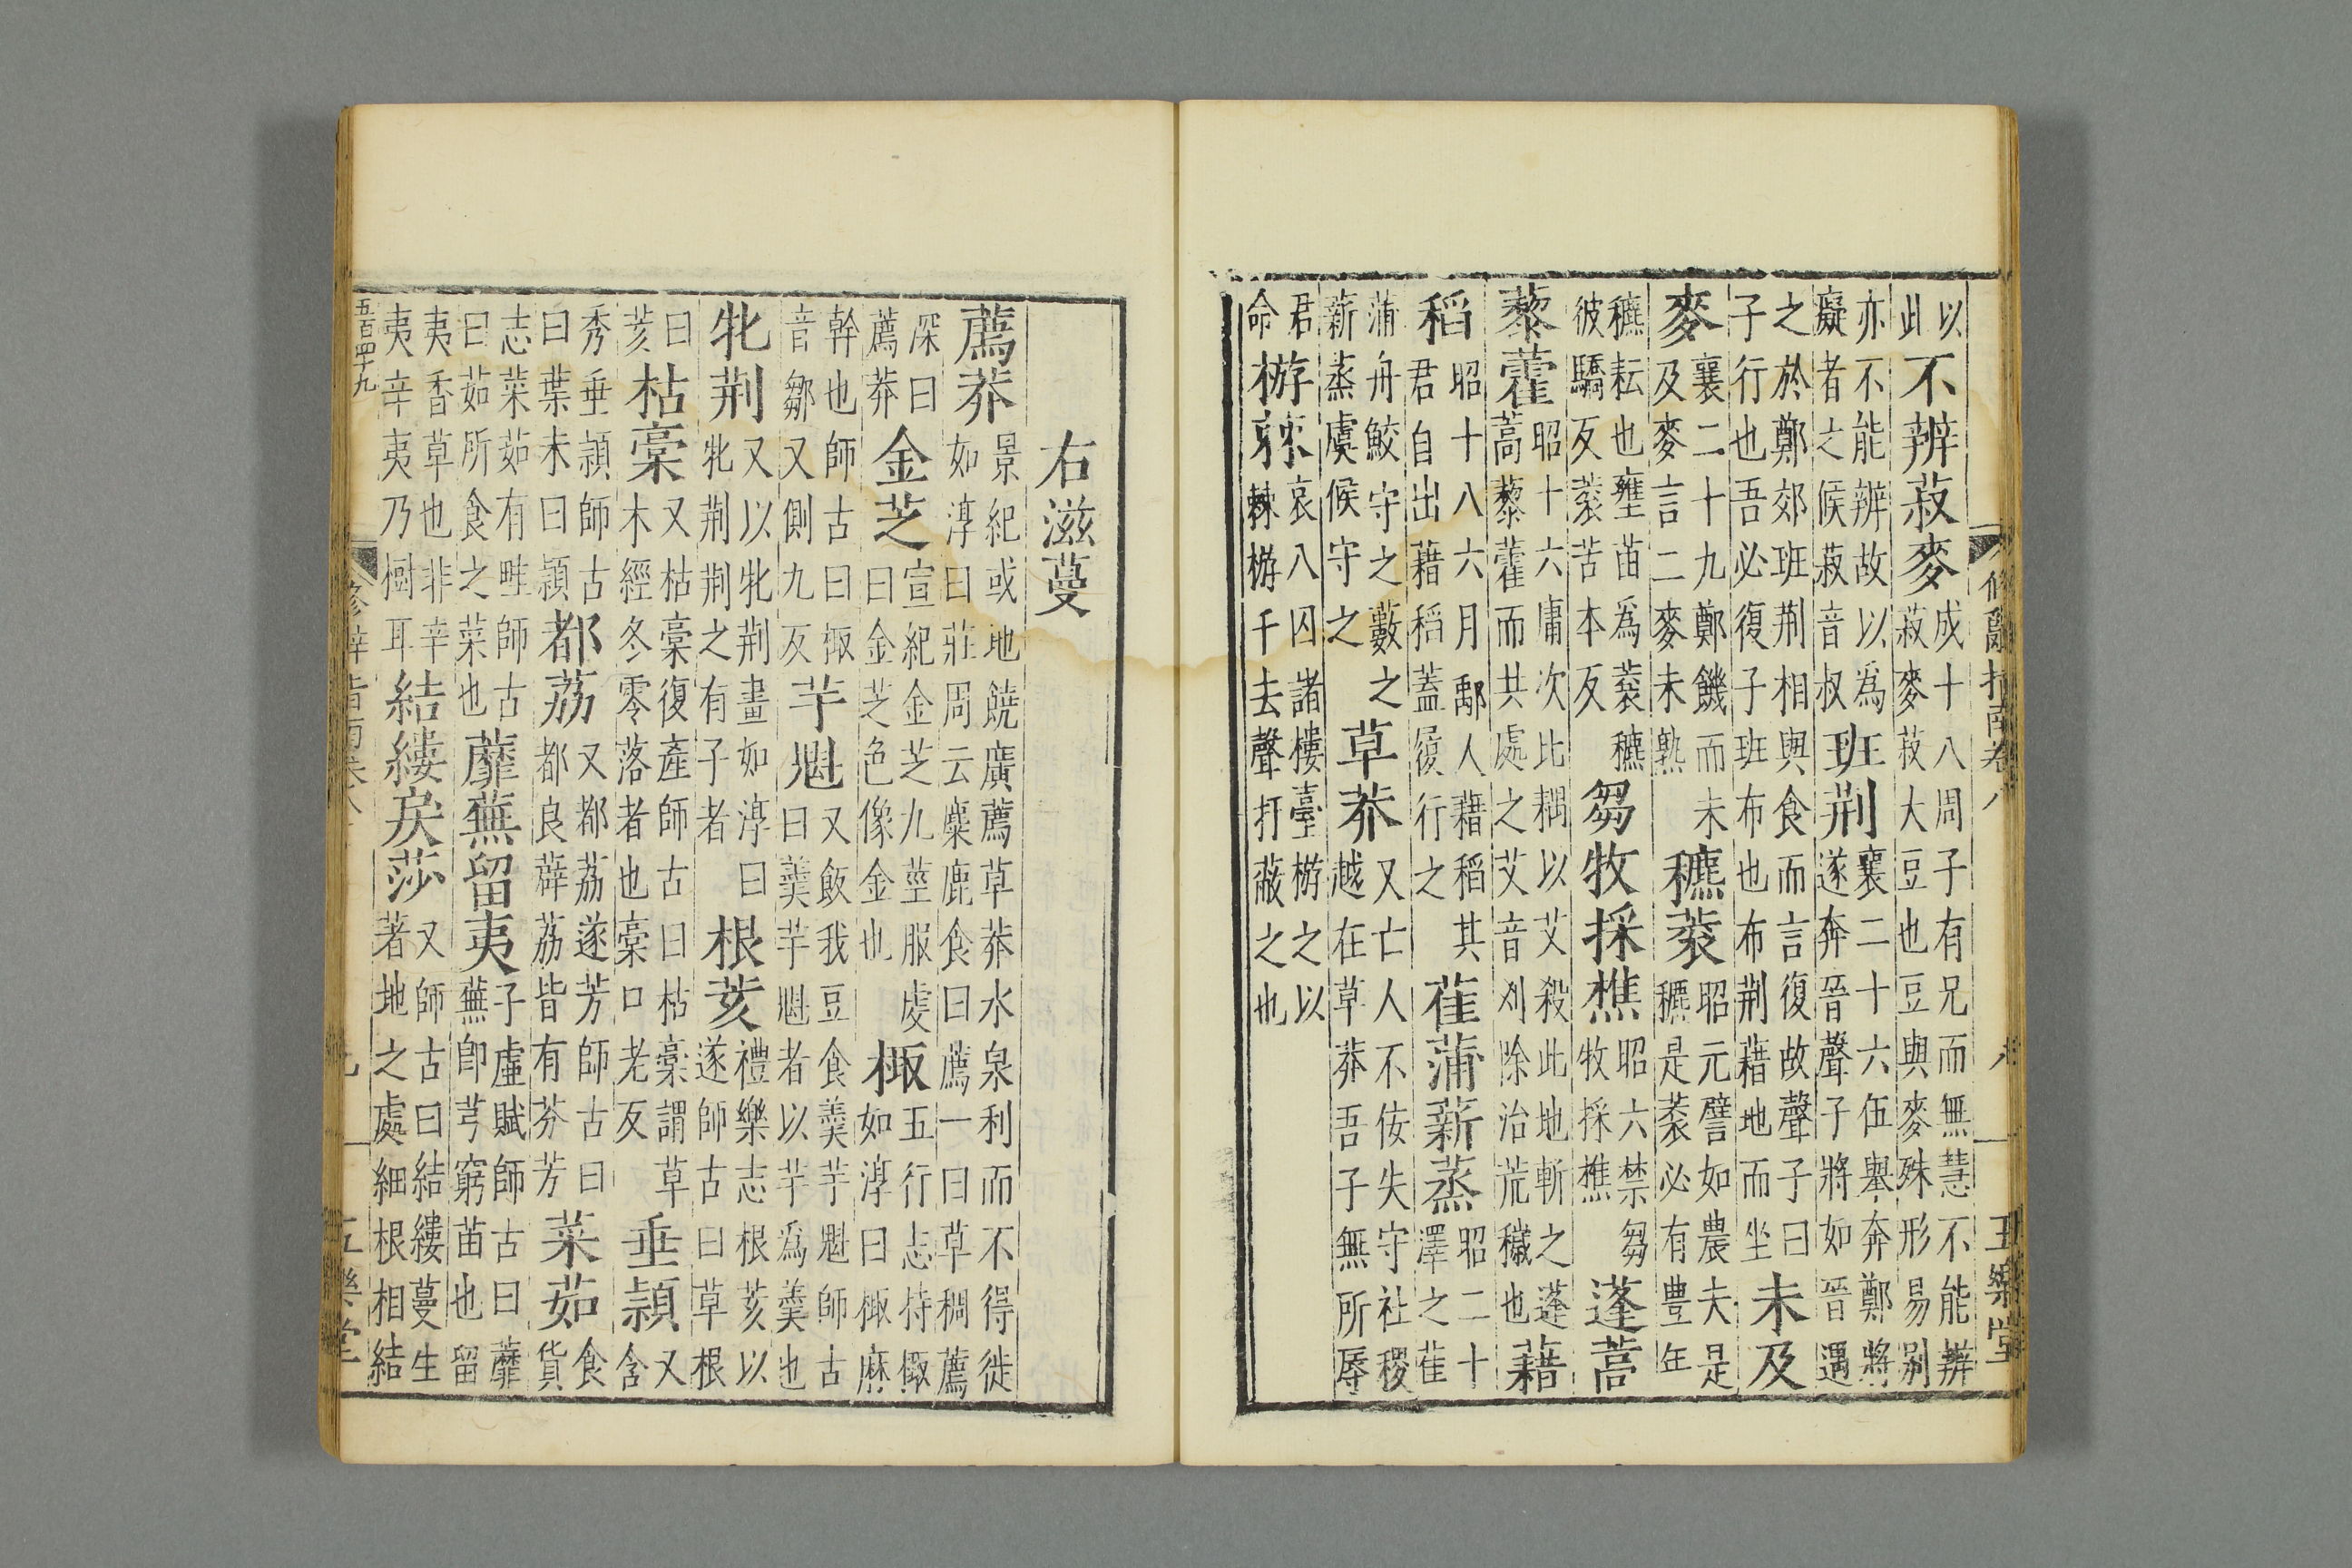 以
此
不辨菽麥
成十八周子有兄而無慧不能辨
菽麥菽大豆也豆與麥殊形易別
亦不能辨故以爲
癡者之候菽音叔
班荆
襄二十六伍舉奔鄭將
遂奔晉聲子將如晉遇
之於鄭郊班荆相與食而言復故聲子曰
子行也吾必復子班布也布荆藉地而坐
未及
麥
襄二十九鄭饑而未
及麥言二麥未熟
穮蓘
昭元譬如農夫是
穮是蓘必有豊年
穮耘也壅苗爲蓘穮
彼驕反蓘苦本反
芻牧採樵
昭六禁芻
牧採樵
蓬蒿
藜藿
昭十六庸次比耦以艾殺此地斬之蓬
蒿藜藿而共處之艾音刈除治荒穢也
藉
稻
昭十八六月鄅人藉稻其
君自出藉稻蓋履行之
萑蒲薪蒸
昭二十
澤之萑
蒲舟鮫守之藪之
薪蒸虞候守之
草莽
又亡人不佞失守社稷
越在草莽吾子無所辱
君
命
栫棘
哀八囚諸樓臺栫之以
棘栫千去聲打蔽之也
修辭指南卷八
八
五樂堂
右滋蔓
薦莽
景紀或地饒廣薦草莽水泉利而不得徙
如淳曰莊周云麋鹿食曰薦一曰草稠薦
深曰
薦莽
金芝
宣紀金芝九莖服虔
曰金芝色像金也
棷
五行志持棷
如淳曰棷麻
幹也師古曰棷
音鄒又側九反
芋魁
又飯我豆食羹芋魁師古
曰羹芋魁者以芋爲羹也
牝荆
又以牝荆畫如淳曰
牝荆荆之有子者
根荄
禮樂志根荄以
遂師古曰草根
曰
荄
枯稾
又枯稾復產師古曰枯稾謂草
木經冬零落者也稾口老反
垂頴
又
含
秀垂頴師古
曰葉末曰頴
都荔
又都荔遂芳師古曰
都良薜荔皆有芬芳
菜茹
食
貨
志菜茹有畦師古
曰茹所食之菜也
蘼蕪留夷
子虛賦師古曰蘼
蕪卽芎窮苗也留
夷香草也非辛
夷辛夷乃樹耳
結縷戾莎
又師古曰結縷蔓生
著地之處細根相結
五百四十九
修辭指南卷八
九
五樂堂